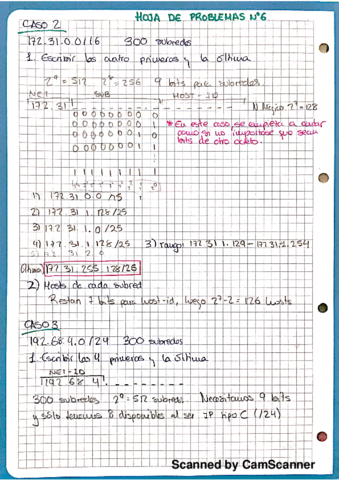 HOJA DE PROBLEMAS Nº6
CASO 2
172.31.0.0/16 300 subredes
1. Escribir las cuatro primeras y la última
2⁹ = 512 2⁸ = 256 9 bits para subredes
NET SUB HOST-ID
172.31 2⁷=128
0 0 0 0 0 0 0 0 0
0 0 0 0 0 0 0 0 1
0 0 0 0 0 0 0 1 0
0 0 0 0 0 0 0 1 1
* En este caso, se empieza a contar
como si no importase que sean
bits de otro octeto.
1 1 1 1 1 1 1 1 1
1) 172.31.0.0
2) 172.31.1.128/25
3) 172.31.1.0/25
4) 172.31.1.128/25 3) rango: 172.31.1.129 - 172.31.1.254
5) 172.31.2.0
Última) 172.31.255.128/25
2) Hosts de cada subred
Restan 7 bits para host-id, luego 2⁷-2 = 126 hosts
CASO 3
192.68.4.0/24 300 subredes
1. Escribir las 4 primeras y la última
NET-ID
192.68.4.
300 subredes 2⁹ = 512 subredes. Necesitamos 9 bits
y sólo tenemos 8 disponibles al ser IP tipo C (/24)
Scanned by CamScanner